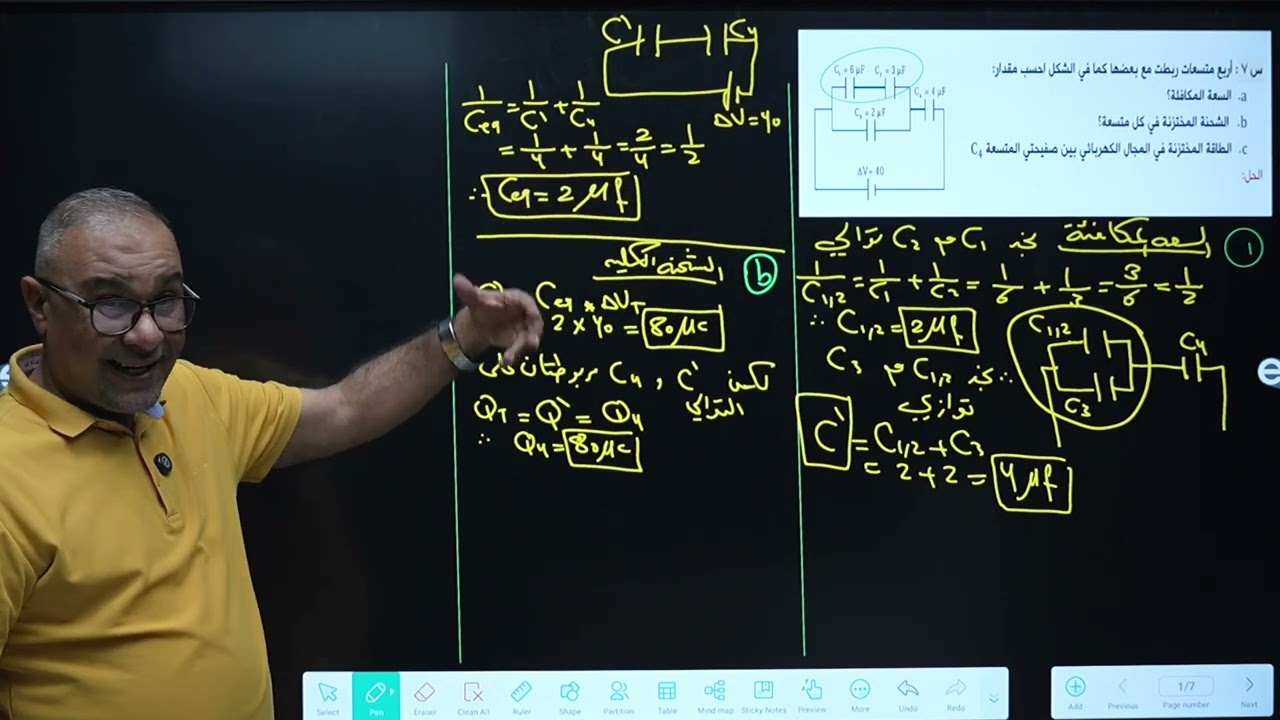 س ٧ : أربع متسعات ربطت مع بعضها كما في الشكل احسب مقدار:
a. السعة المكافلة؟
b. الشحنة المختزنة في كل متسعة؟
c. الطاقة المختزنة في المجال الكهربائي بين صفيحتي المتسعة C₄
الحل:
C₁ = 6 μF C₂ = 3 μF
C₄ = 4 μF
C₃ = 2 μF
ΔV = 40
١ السعة المكافئة نجد C₁ مع C₂ توالي
1/C₁,₂ = 1/C₁ + 1/C₂ = 1/6 + 1/3 = 3/6 = 1/2
∴ C₁,₂ = 2 μf
C₁,₂ C₃ C₄
∴ نجد C₁,₂ مع C₃
توازي
C\ = C₁,₂ + C₃
= 2 + 2 = 4 μf
C\ C₄
ΔV = 40
1/Ceq = 1/C\ + 1/C₄
= 1/4 + 1/4 = 2/4 = 1/2
∴ Ceq = 2 μf
b الشحنة الكلية
Ceq × ΔV_T
2 × 40 = 80 μc
لكن C\ , C₄ مربوطتان على
التوالي
Q_T = Q\ = Q₄
∴ Q₄ = 80 μc
Select Pen Eraser Clean All Ruler Shape Partition Table Mind map Sticky Notes Preview More Undo Redo
Add Previous 1/7 Page number Next